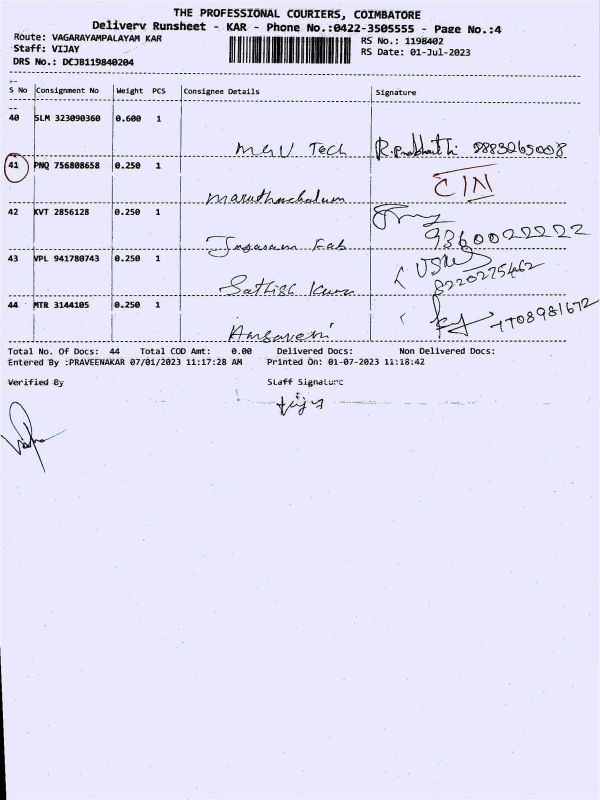 THE PROFESSIONAL COURIERS, COIMBATORE
Delivery Runsheet - KAR - Phone No.:0422-3505555 - Page No.:4
Route: VAGARAYAMPALAYAM KAR
RS No.: 1198402
Staff: VIJAY
RS Date: 01-Jul-2023
DRS No.: DCJB119840204
S No Consignment No Weight PCS Consignee Details Signature
40 SLM 323090360 0.600 1
MGV Tech
41 PNQ 756808658 0.250 1 CIN
Maruthachalam
42 KVT 2856128 0.250 1
9360022222
43 VPL 941780743 0.250 1
8220275462
Sathish Kumar
44 MTR 3144105 0.250 1
7708981672
Total No. Of Docs: 44 Total COD Amt: 0.00 Delivered Docs: Non Delivered Docs:
Entered By :PRAVEENAKAR 07/01/2023 11:17:28 AM Printed On: 01-07-2023 11:18:42
Verified By Staff Signature